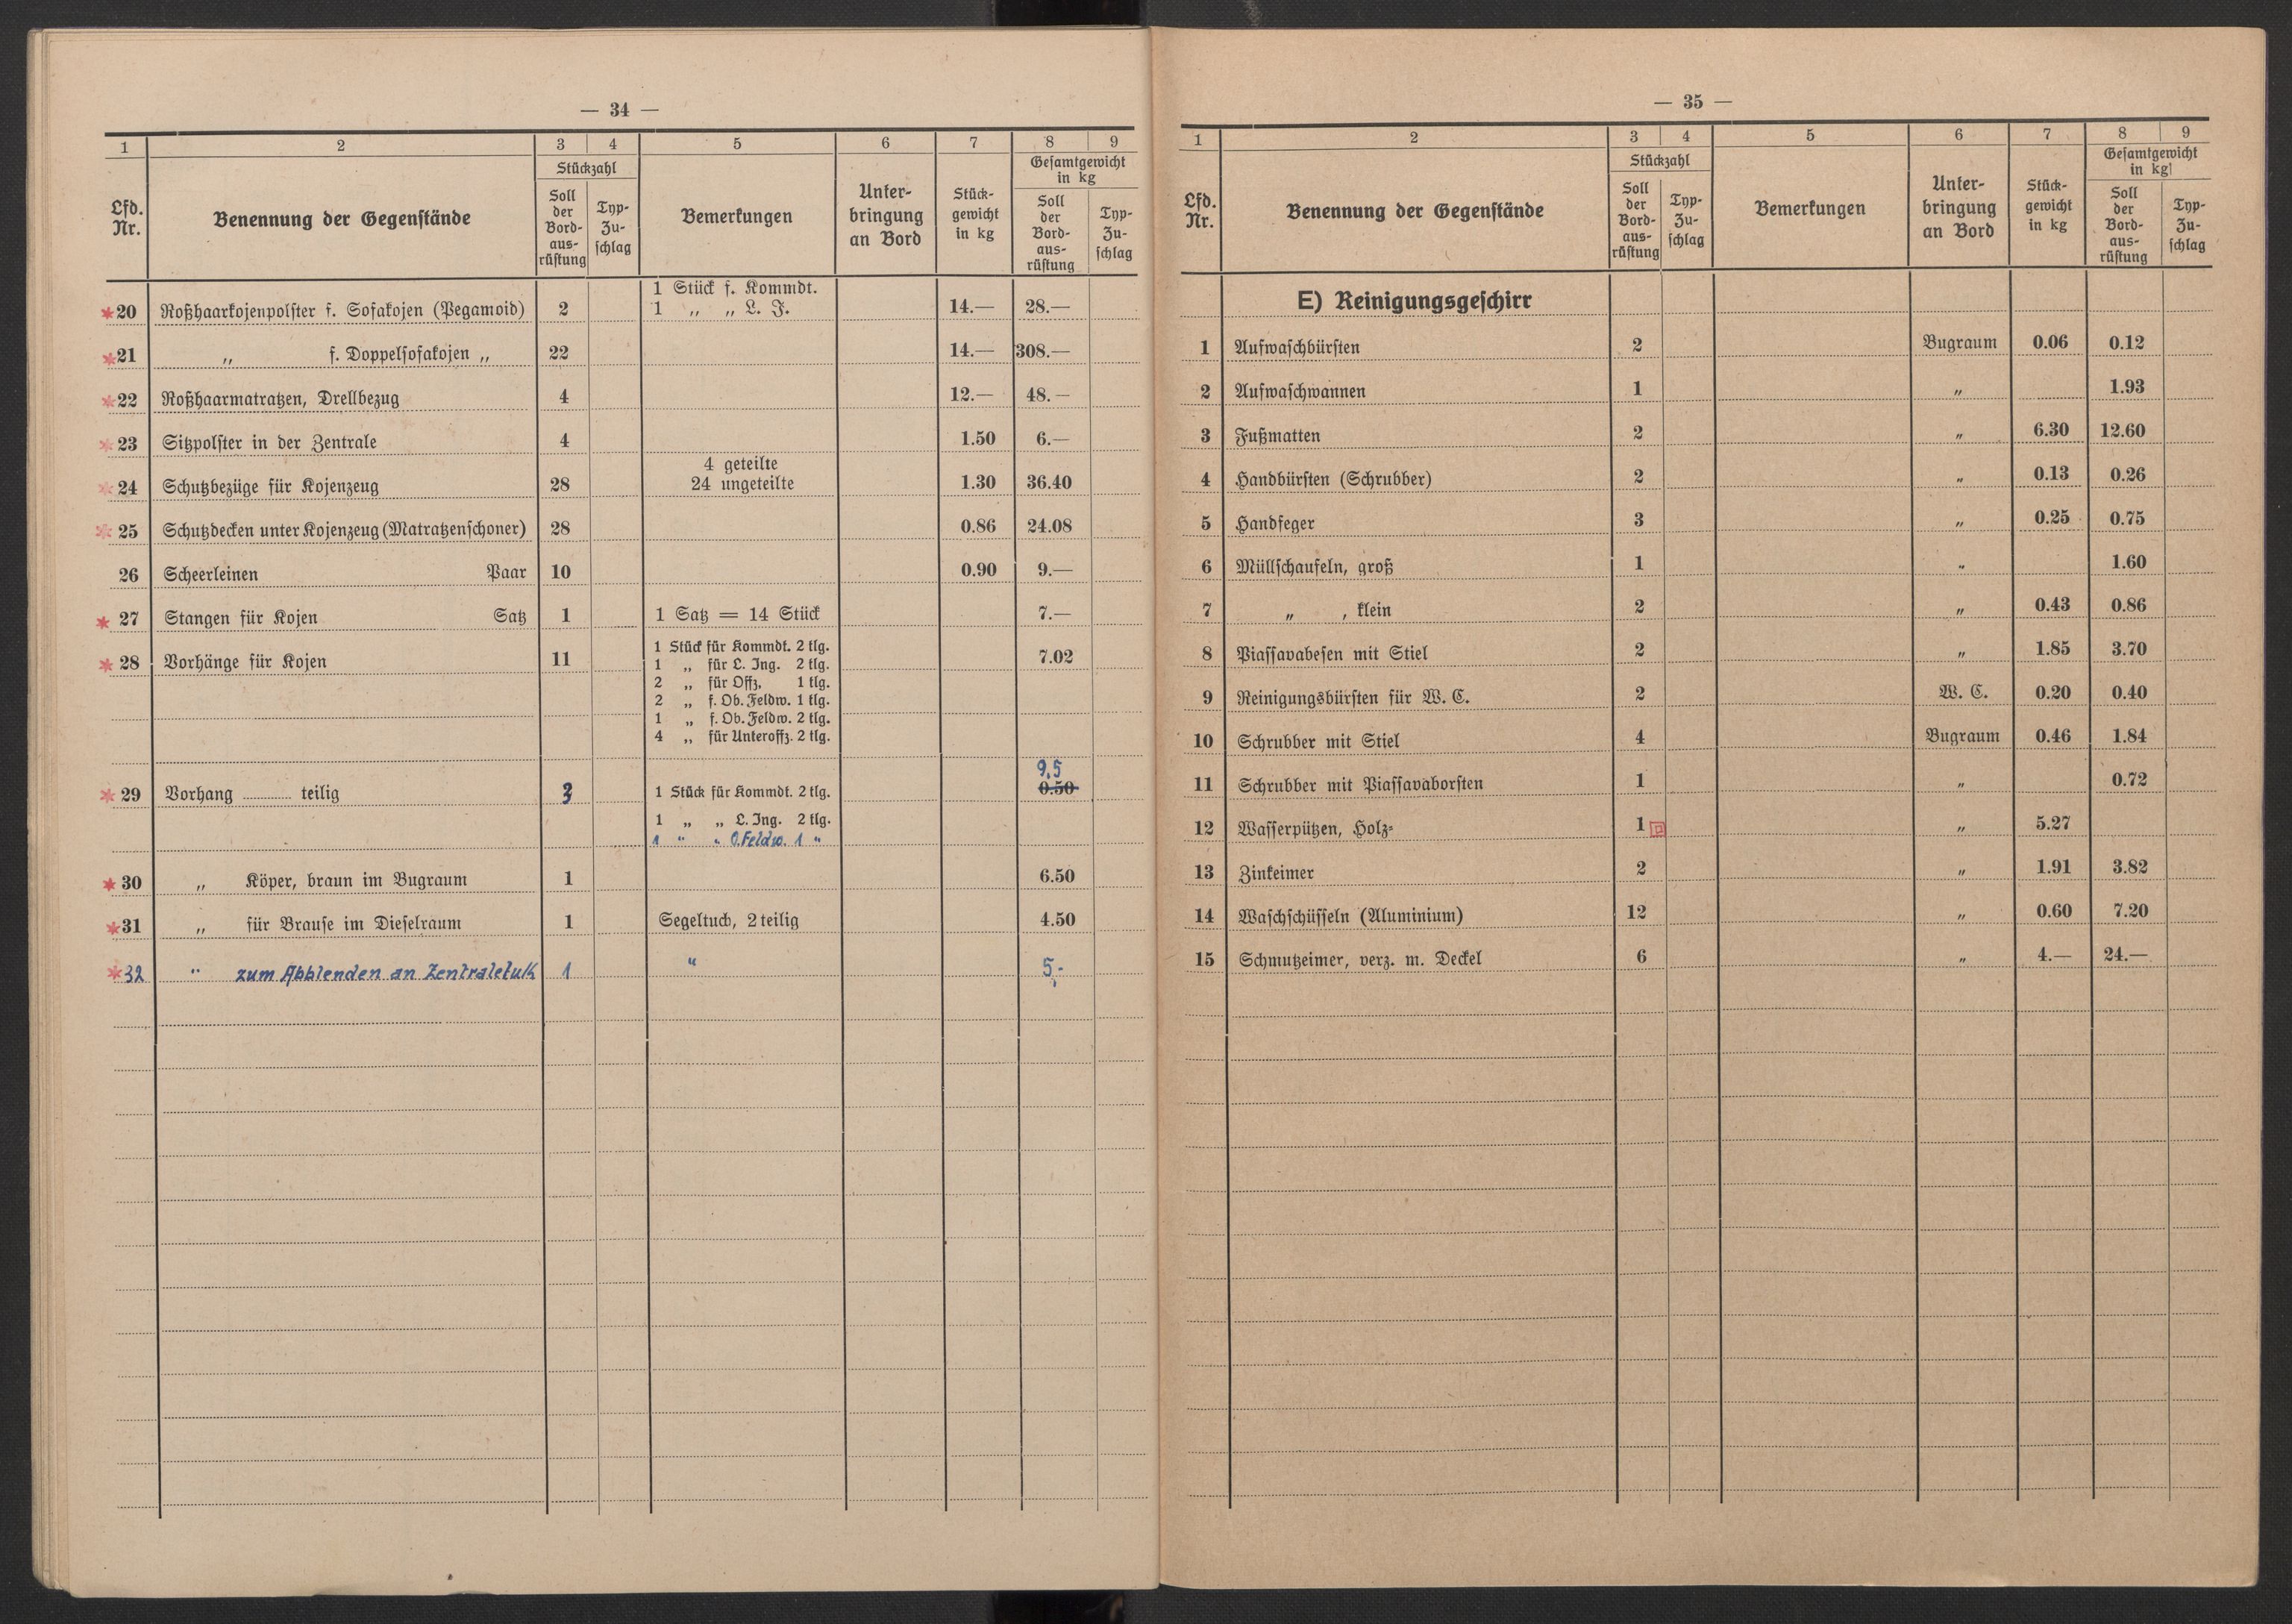 — 34 —
1 2 3 4 5 6 7 8 9
Lfd. Nr. Benennung der Gegenstände Stückzahl Soll der Bord-aus-rüstung Typ-Zu-schlag Bemerkungen Unter-bringung an Bord Stück-gewicht in kg Gesamtgewicht in kg Soll der Bord-aus-rüstung Typ-Zu-schlag
1 Stück f. Kommdt.
*20 Roßhaarkojenpolster f. Sofakojen (Pegamoid) 2 1 „ „ L. J. 14.— 28.—
*21 „ f. Doppelsofakojen „ 22 14.— 308.—
*22 Roßhaarmatratzen, Drellbezug 4 12.— 48.—
*23 Sitzpolster in der Zentrale 4 1.50 6.—
4 geteilte
*24 Schutzbezüge für Kojenzeug 28 24 ungeteilte 1.30 36.40
*25 Schutzdecken unter Kojenzeug (Matratzenschoner) 28 0.86 24.08
26 Scheerleinen Paar 10 0.90 9.—
*27 Stangen für Kojen Satz 1 1 Satz = 14 Stück 7.—
1 Stück für Kommdt. 2 tlg.
*28 Vorhänge für Kojen 11 1 „ für L. Ing. 2 tlg. 7.02
2 „ für Offz. 1 tlg.
2 „ f. Ob. Feldw. 1 tlg.
1 „ f. Ob. Feldw. 2 tlg.
4 „ für Unteroffz. 2 tlg.
9,5
*29 Vorhang ........ teilig 3 1 Stück für Kommdt. 2 tlg. 0.50
1 „ „ L. Ing. 2 tlg.
1 " " O.Feldw. 1 "
*30 „ Köper, braun im Bugraum 1 6.50
*31 „ für Brause im Dieselraum 1 Segeltuch, 2 teilig 4.50
*32 " zum Abblenden an Zentraleluk 1 " 5,-
— 35 —
1 2 3 4 5 6 7 8 9
Lfd. Nr. Benennung der Gegenstände Stückzahl Soll der Bord-aus-rüstung Typ-Zu-schlag Bemerkungen Unter-bringung an Bord Stück-gewicht in kg Gesamtgewicht in kg Soll der Bord-aus-rüstung Typ-Zu-schlag
E) Reinigungsgeschirr
1 Aufwaschbürsten 2 Bugraum 0.06 0.12
2 Aufwaschwannen 1 „ 1.93
3 Fußmatten 2 „ 6.30 12.60
4 Handbürsten (Schrubber) 2 „ 0.13 0.26
5 Handfeger 3 „ 0.25 0.75
6 Müllschaufeln, groß 1 „ 1.60
7 „ , klein 2 „ 0.43 0.86
8 Piassavabesen mit Stiel 2 „ 1.85 3.70
9 Reinigungsbürsten für W. C. 2 W. C. 0.20 0.40
10 Schrubber mit Stiel 4 Bugraum 0.46 1.84
11 Schrubber mit Piassavaborsten 1 „ 0.72
12 Wasserpützen, Holz- 1 „ 5.27
13 Zinkeimer 2 „ 1.91 3.82
14 Waschschüsseln (Aluminium) 12 „ 0.60 7.20
15 Schmutzeimer, verz. m. Deckel 6 „ 4.— 24.—